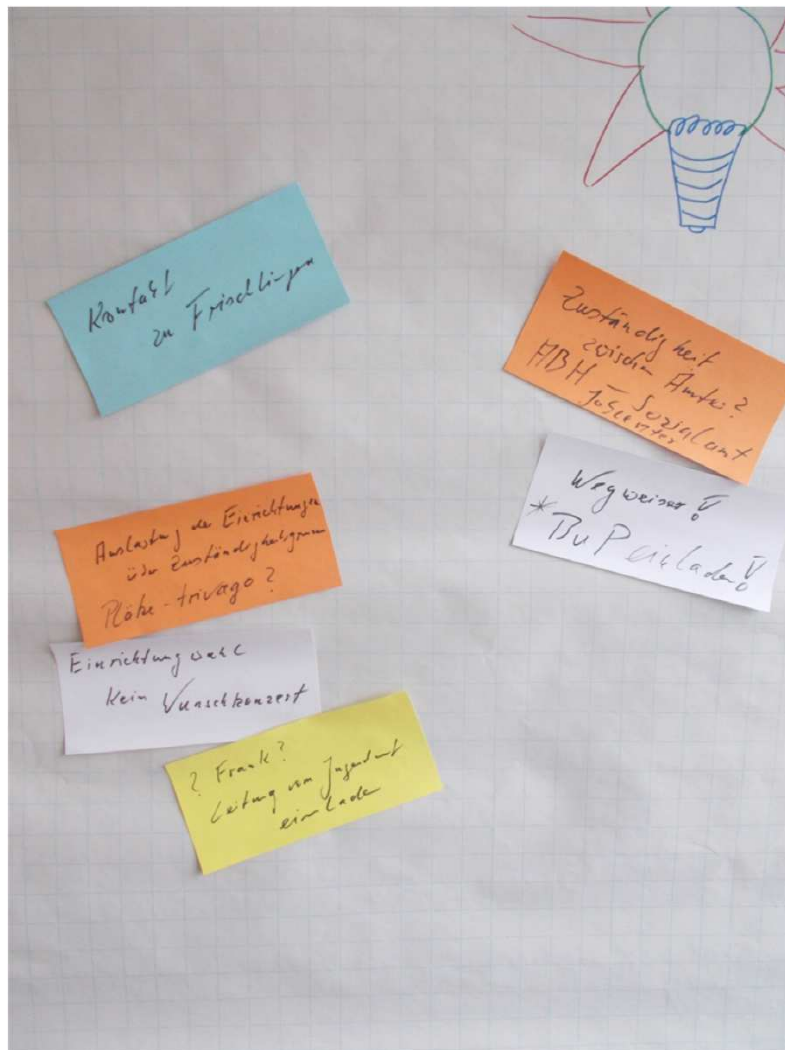 Kontakt
zu Frischlingen
Zuständigkeit
zwischen Ämter?
ABH – Sozialamt
Jobcenter
Wegweiser!
* BuP einladen!
Auslastung der Einrichtungen
über Zuständigkeitsgrenzen
Plätze-trivago?
Einrichtungswahl
kein Wunschkonzert
? Frank?
Leitung vom Jugendamt
einladen